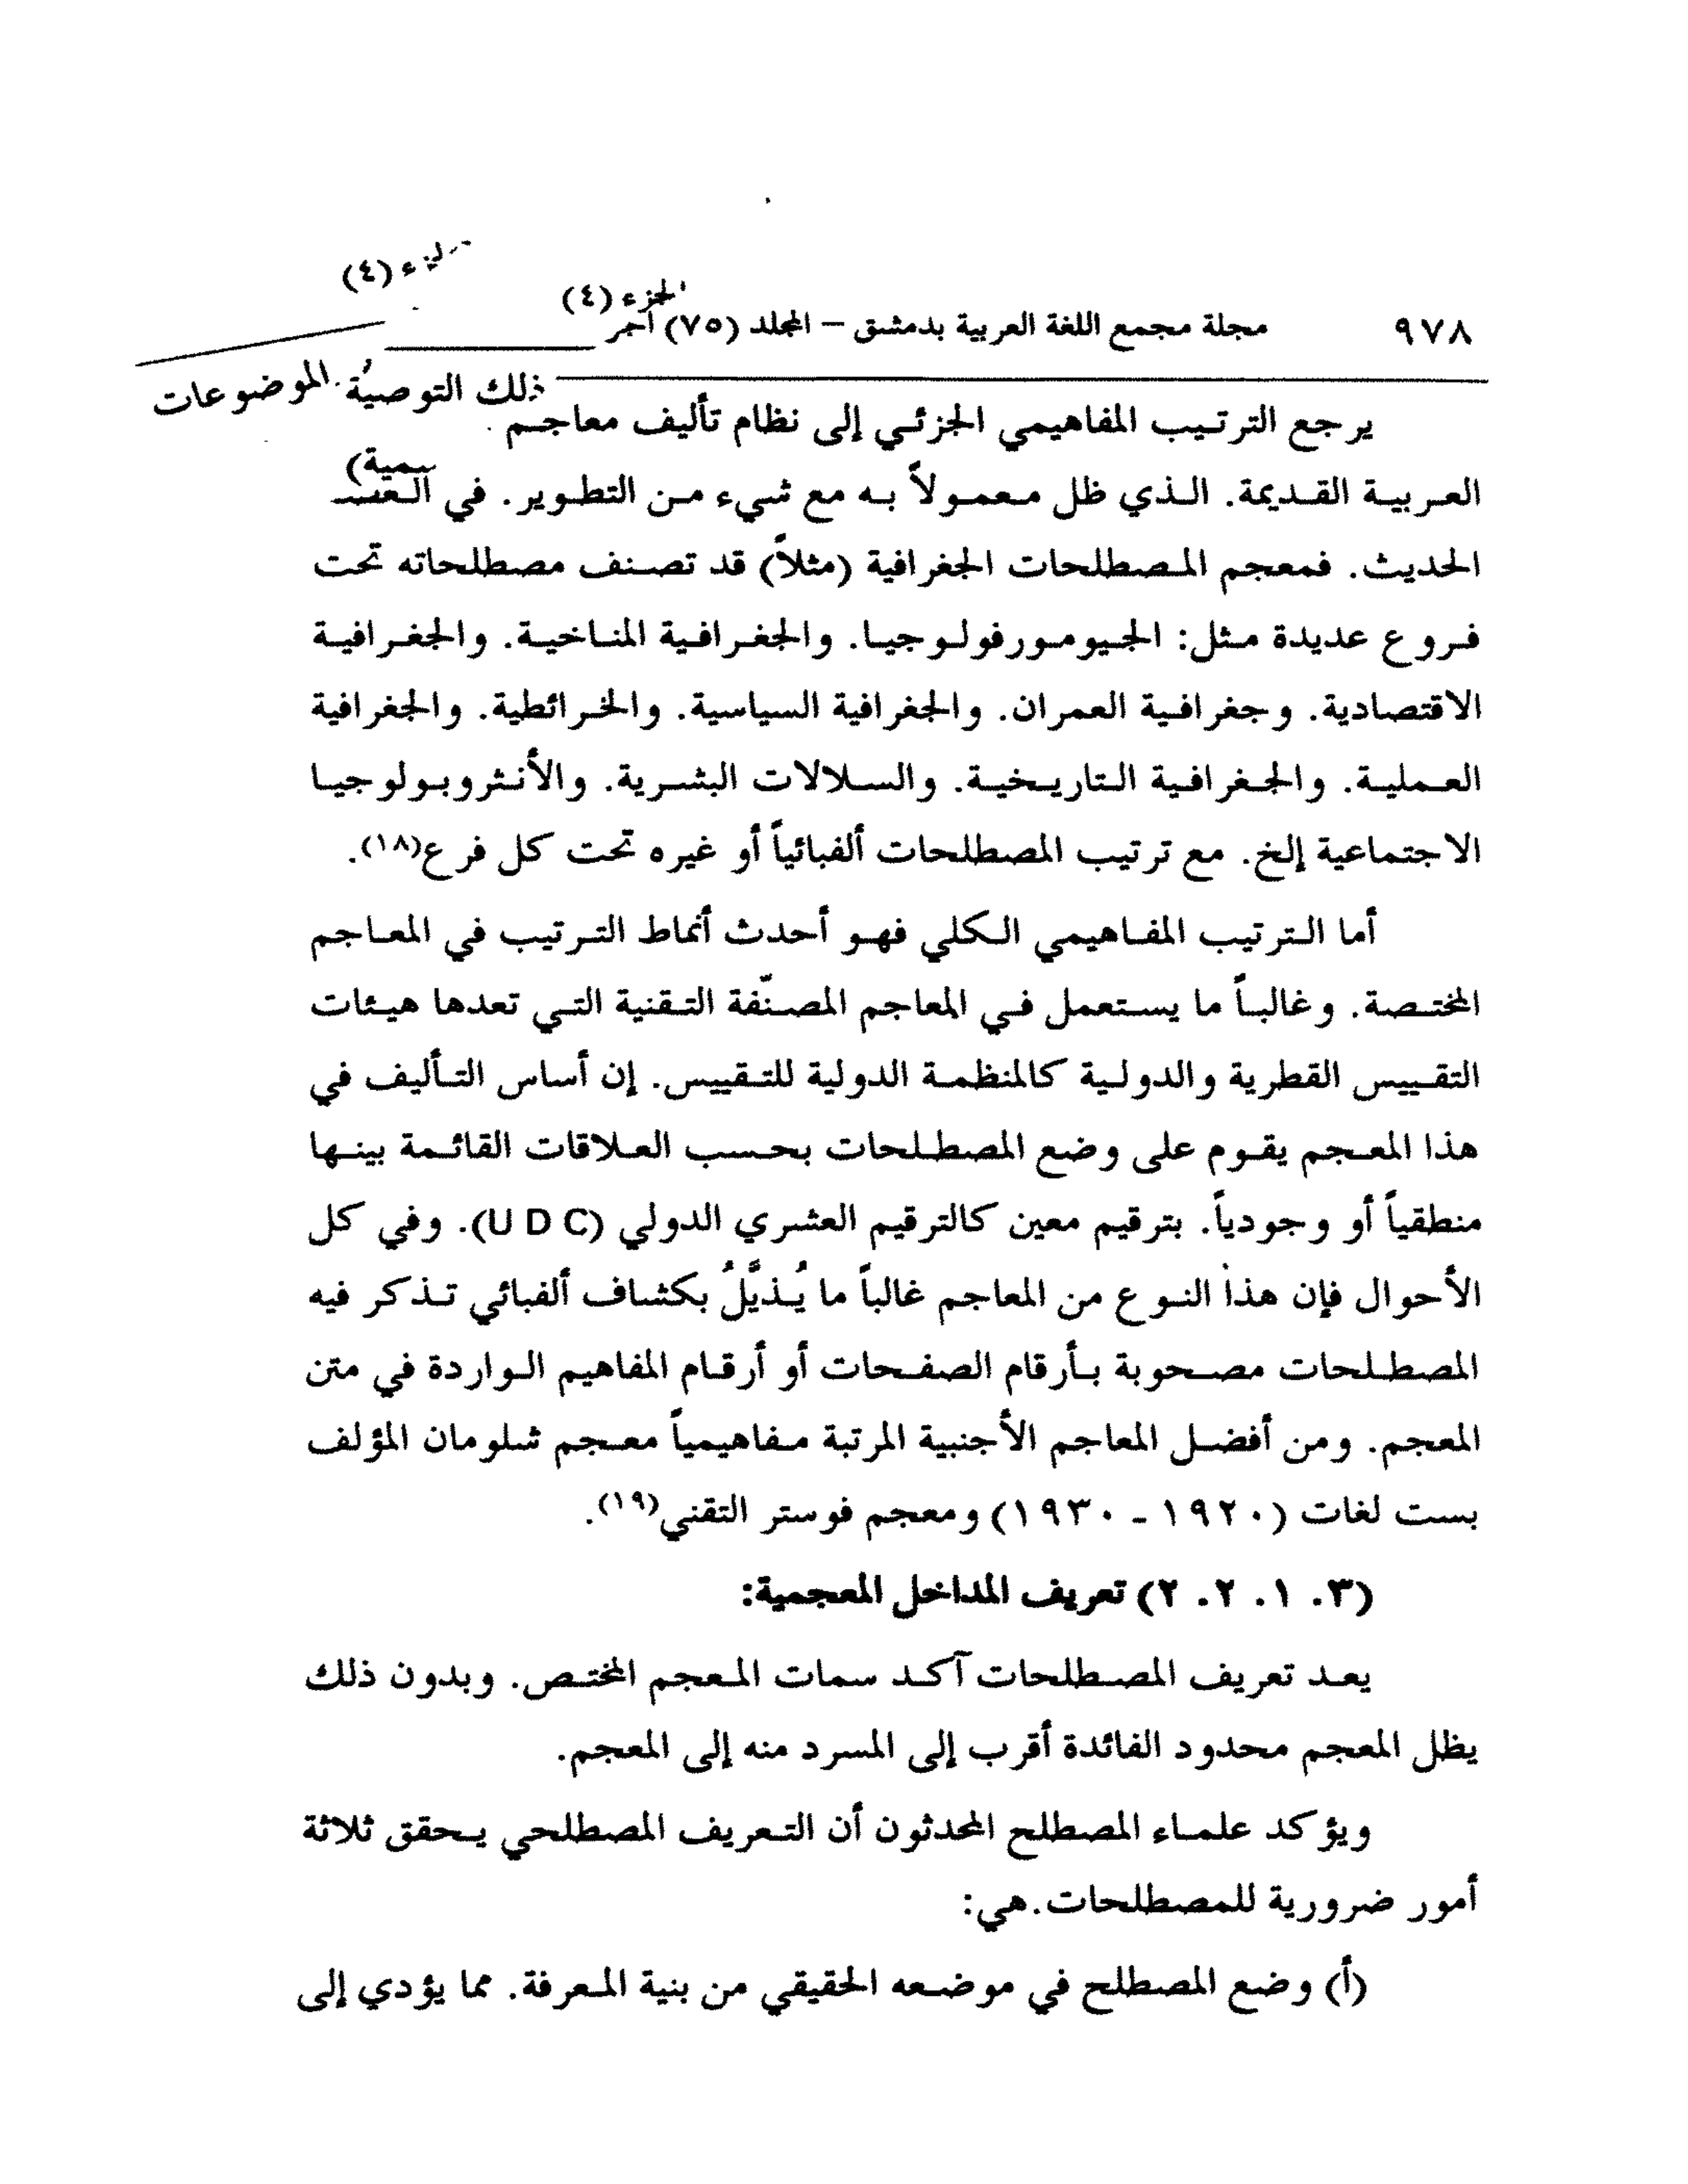 الجزء (٤)
٩٧٨ مجلة مجمع اللغة العربية بدمشق – المجلد (٧٥) الجزء (٤)
ذلك التوصية الموضوعات
يرجع الترتيب المفاهيمي الجزئي إلى نظام تأليف معاجم
العربية القديمة. الذي ظل معمولاً به مع شيء من التطوير. في
الحديث. فمعجم المصطلحات الجغرافية (مثلاً) قد تصنف مصطلحاته تحت
فروع عديدة مثل: الجيومورفولوجيا. والجغرافية المناخية. والجغرافية
الاقتصادية. وجغرافية العمران. والجغرافية السياسية. والخرائطية. والجغرافية
العملية. والجغرافية التاريخية. والسلالات البشرية. والأنثروبولوجيا
الاجتماعية إلخ. مع ترتيب المصطلحات ألفبائياً أو غيره تحت كل فرع(١٨).
أما الترتيب المفاهيمي الكلي فهو أحدث أنماط الترتيب في المعاجم
المختصة. وغالباً ما يستعمل في المعاجم المصنّفة التقنية التي تعدها هيئات
التقييس القطرية والدولية كالمنظمة الدولية للتقييس. إن أساس التأليف في
هذا المعجم يقوم على وضع المصطلحات بحسب العلاقات القائمة بينها
منطقياً أو وجودياً. بترقيم معين كالترقيم العشري الدولي (U D C). وفي كل
الأحوال فإن هذا النوع من المعاجم غالباً ما يُذيَّلُ بكشاف ألفبائي تذكر فيه
المصطلحات مصحوبة بأرقام الصفحات أو أرقام المفاهيم الواردة في متن
المعجم. ومن أفضل المعاجم الأجنبية المرتبة مفاهيمياً معجم شلومان المؤلف
بست لغات (١٩٢٠ - ١٩٣٠) ومعجم فوستر التقني(١٩).
(٣. ١. ٢. ٢) تعريف المداخل المعجمية:
يعد تعريف المصطلحات آكد سمات المعجم المختص. وبدون ذلك
يظل المعجم محدود الفائدة أقرب إلى المسرد منه إلى المعجم.
ويؤكد علماء المصطلح المحدثون أن التعريف المصطلحي يحقق ثلاثة
أمور ضرورية للمصطلحات.هي:
(أ) وضع المصطلح في موضعه الحقيقي من بنية المعرفة. مما يؤدي إلى